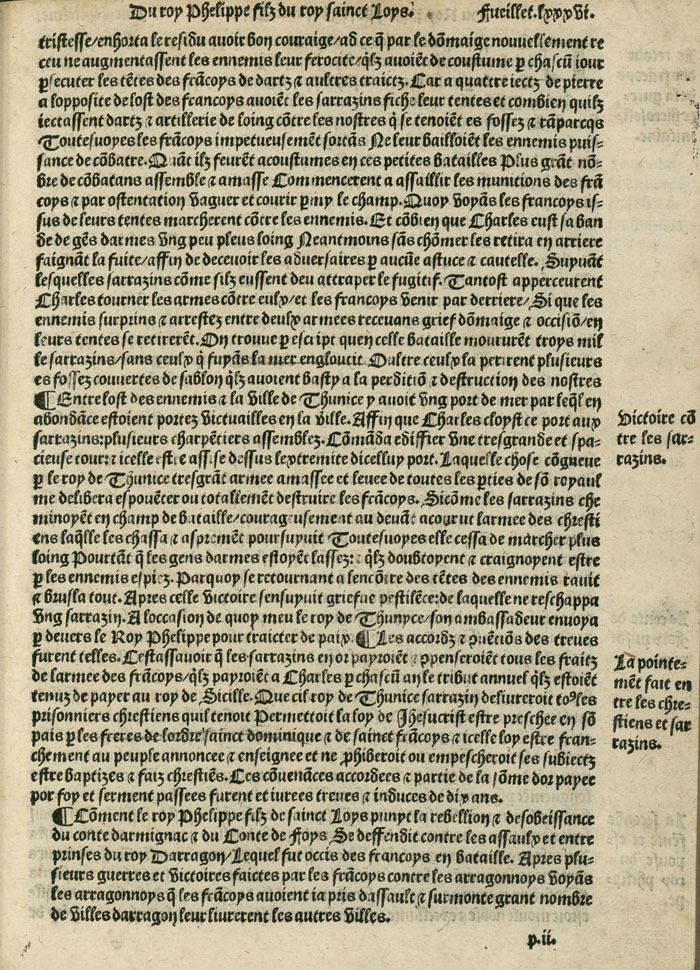 Du roy Phelippe filz du roy sainct Loys. Fueillet. lxxxvi.
tristesse/enhorta le residu auoir bon couraige/ad ce q̃ par le dõmaige nouuellement re
ceu ne augmentassent les ennemis leur ferocite/q̃lz auoiẽt de coustume ꝑ chascũ iour
ꝑsecuter les tẽtes des frãcoys de dartz ⁊ aultres traictz. Car a quattre iectz de pierre
a lopposite de lost des francoys auoiẽt les sarrazins fiche leur tentes et combien quilz
iectassent dartz ⁊ artillerie de loing cõtre les nostres q̃ se tenoiẽt es fossez ⁊ rãparcqs
Toutesuoyes les frãcoys impetueusemẽt sortãs Ne leur bailloiẽt les ennemis puis-
sance de cõbatre. Quãt ilz feurẽt acoustumes en ces petites batailles Plus grãt nõ-
bre de cõbatans assemble ⁊ amasse Commencerent a assaillir les munitions des frã
coys ⁊ par ostentation vaguer et courir ꝑmy le champ. Quoy voyãs les francoys is-
sus de leurs tentes marcherent cõtre les ennemis. Et cõbien que Charles eust sa ban
de de gẽs darmes vng peu pleus loing Neantmoins sãs chõmer les retira en arriere
faignãt la fuite/affin de deceuoir les aduersaires ꝑ aucũe astuce ⁊ cautelle. Suyuãt
lesquelles sarrazins cõme silz eussent deu attraper le fugitif. Tantost apperceurent
Charles tourner les armes cõtre eulx/et les francoys venir par derriere/Si que les
ennemis surprins ⁊ arrestez entre deulx armees receuans grief dõmaige ⁊ occisiõ/en
leurs tentes se retirerẽt. On trouue ꝑ escript quen celle bataille moururẽt troys mil
le sarrazins/sans ceulx q̃ fuyãs la mer engloucit. Oultre ceulx la perirent plusieurs
es fossez couuertes de sablon q̃lz auoient basty a la perditiõ ⁊ destruction des nostres
¶Entre lost des ennemis ⁊ la ville de Thunice y auoit vng port de mer par leq̃l en
abondãce estoient portez victuailles en la ville. Affin que Charles cloyst ce port aux
sarrazins:plusieurs charpẽtiers assemblez. Cõmãda ediffier vne tresgrande et spa-
cieuse tour:⁊ icelle estre assise dessus lextremite dicelluy port. Laquelle chose cõgneue
ꝑ le roy de Thunice tresgrãt armee amassee et leuee de toutes les ꝑties de sõ royaul
me delibera espouẽter ou totallemẽt destruire les frãcoys. Sicõme les sarrazins che
minoyẽt en champ de bataille/courageusement au deuãt acourut larmee des chresti
ens laq̃lle les chassa ⁊ asprement poursuyuit Toutesuoyes elle cessa de marcher plus
loing Pourtãt q̃ les gens darmes estoyẽt lassez:⁊ q̃lz doubtoyent ⁊ craignoyent estre
ꝑ les ennemis espiez. Parquoy se retournant a lencõtre des tẽtes des ennemis rauit
⁊ brusla tout. Apres celle victoire sensuyuit griefue pestilẽce:de laquelle ne reschappa
vng sarrazin. A loccasion de quoy meu le roy de Thunyce/son ambassadeur enuoya
ꝑ deuers le Roy Phelippe pour traicter de paix. ¶Les accordz ⁊ cõuẽtiõs des treues
furent telles. Cestassauoir q̃ les sarrazins en or payroiẽt ⁊ recõpenseroiẽt tous les fraitz
de larmee des frãcoys/q̃lz payroiẽt a Charles ꝑ chascũ an le tribut annuel q̃lz estoiẽt
tenuz de payer au roy de Sicille. Que cil roy de Thunice sarrazin deliureroit toꝰles
prisonniers chrestiens quil tenoit Permettoit la loy de Jhesucrist estre preschee en sõ
pais ꝑ les freres de lordre sainct dominique ⁊ de sainct frãcoys ⁊ icelle loy estre fran-
chement au peuple annoncee ⁊ enseignee et ne ꝓhiberoit ou empescheroit ses subiectz
estre baptizes ⁊ faiz chrestiẽs. Ces cõuenãces accordees ⁊ partie de la sõme dor payee
por foy et serment passees furent et iurees treues ⁊ induces de dix ans.
¶Cõment le roy Phelippe filz de sainct Loys punyt la rebellion ⁊ desobeissance
du conte darmignac ⁊ du Conte de Foys Se deffendit contre les assaulx et entre
prinses du roy Darragon/Lequel fut occis des francoys en bataille. Apres plu-
sieurs guerres et victoires faictes par les frãcoys contre les arragonnoys voyãs
les arragonnoys q̃ les frãcoys auoient ia pris dassault ⁊ surmonte grant nombre
de villes darragon leur liurerent les autres villes.
p.ii.
Victoire cõ
tre les sar-
razins.
La pointe-
mẽt fait en
tre les chre-
stiens et sar
razins.